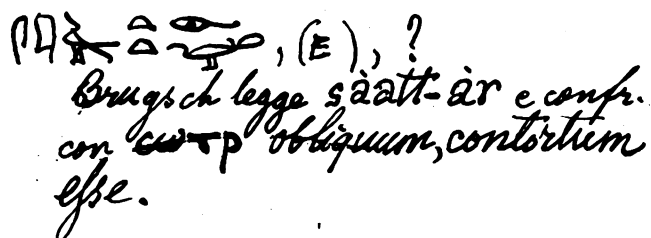 , (E), ?
Brugsch legge sàatt-àr e confr.
con ⲥⲱⲧⲣ obliquum, contortum
esse.